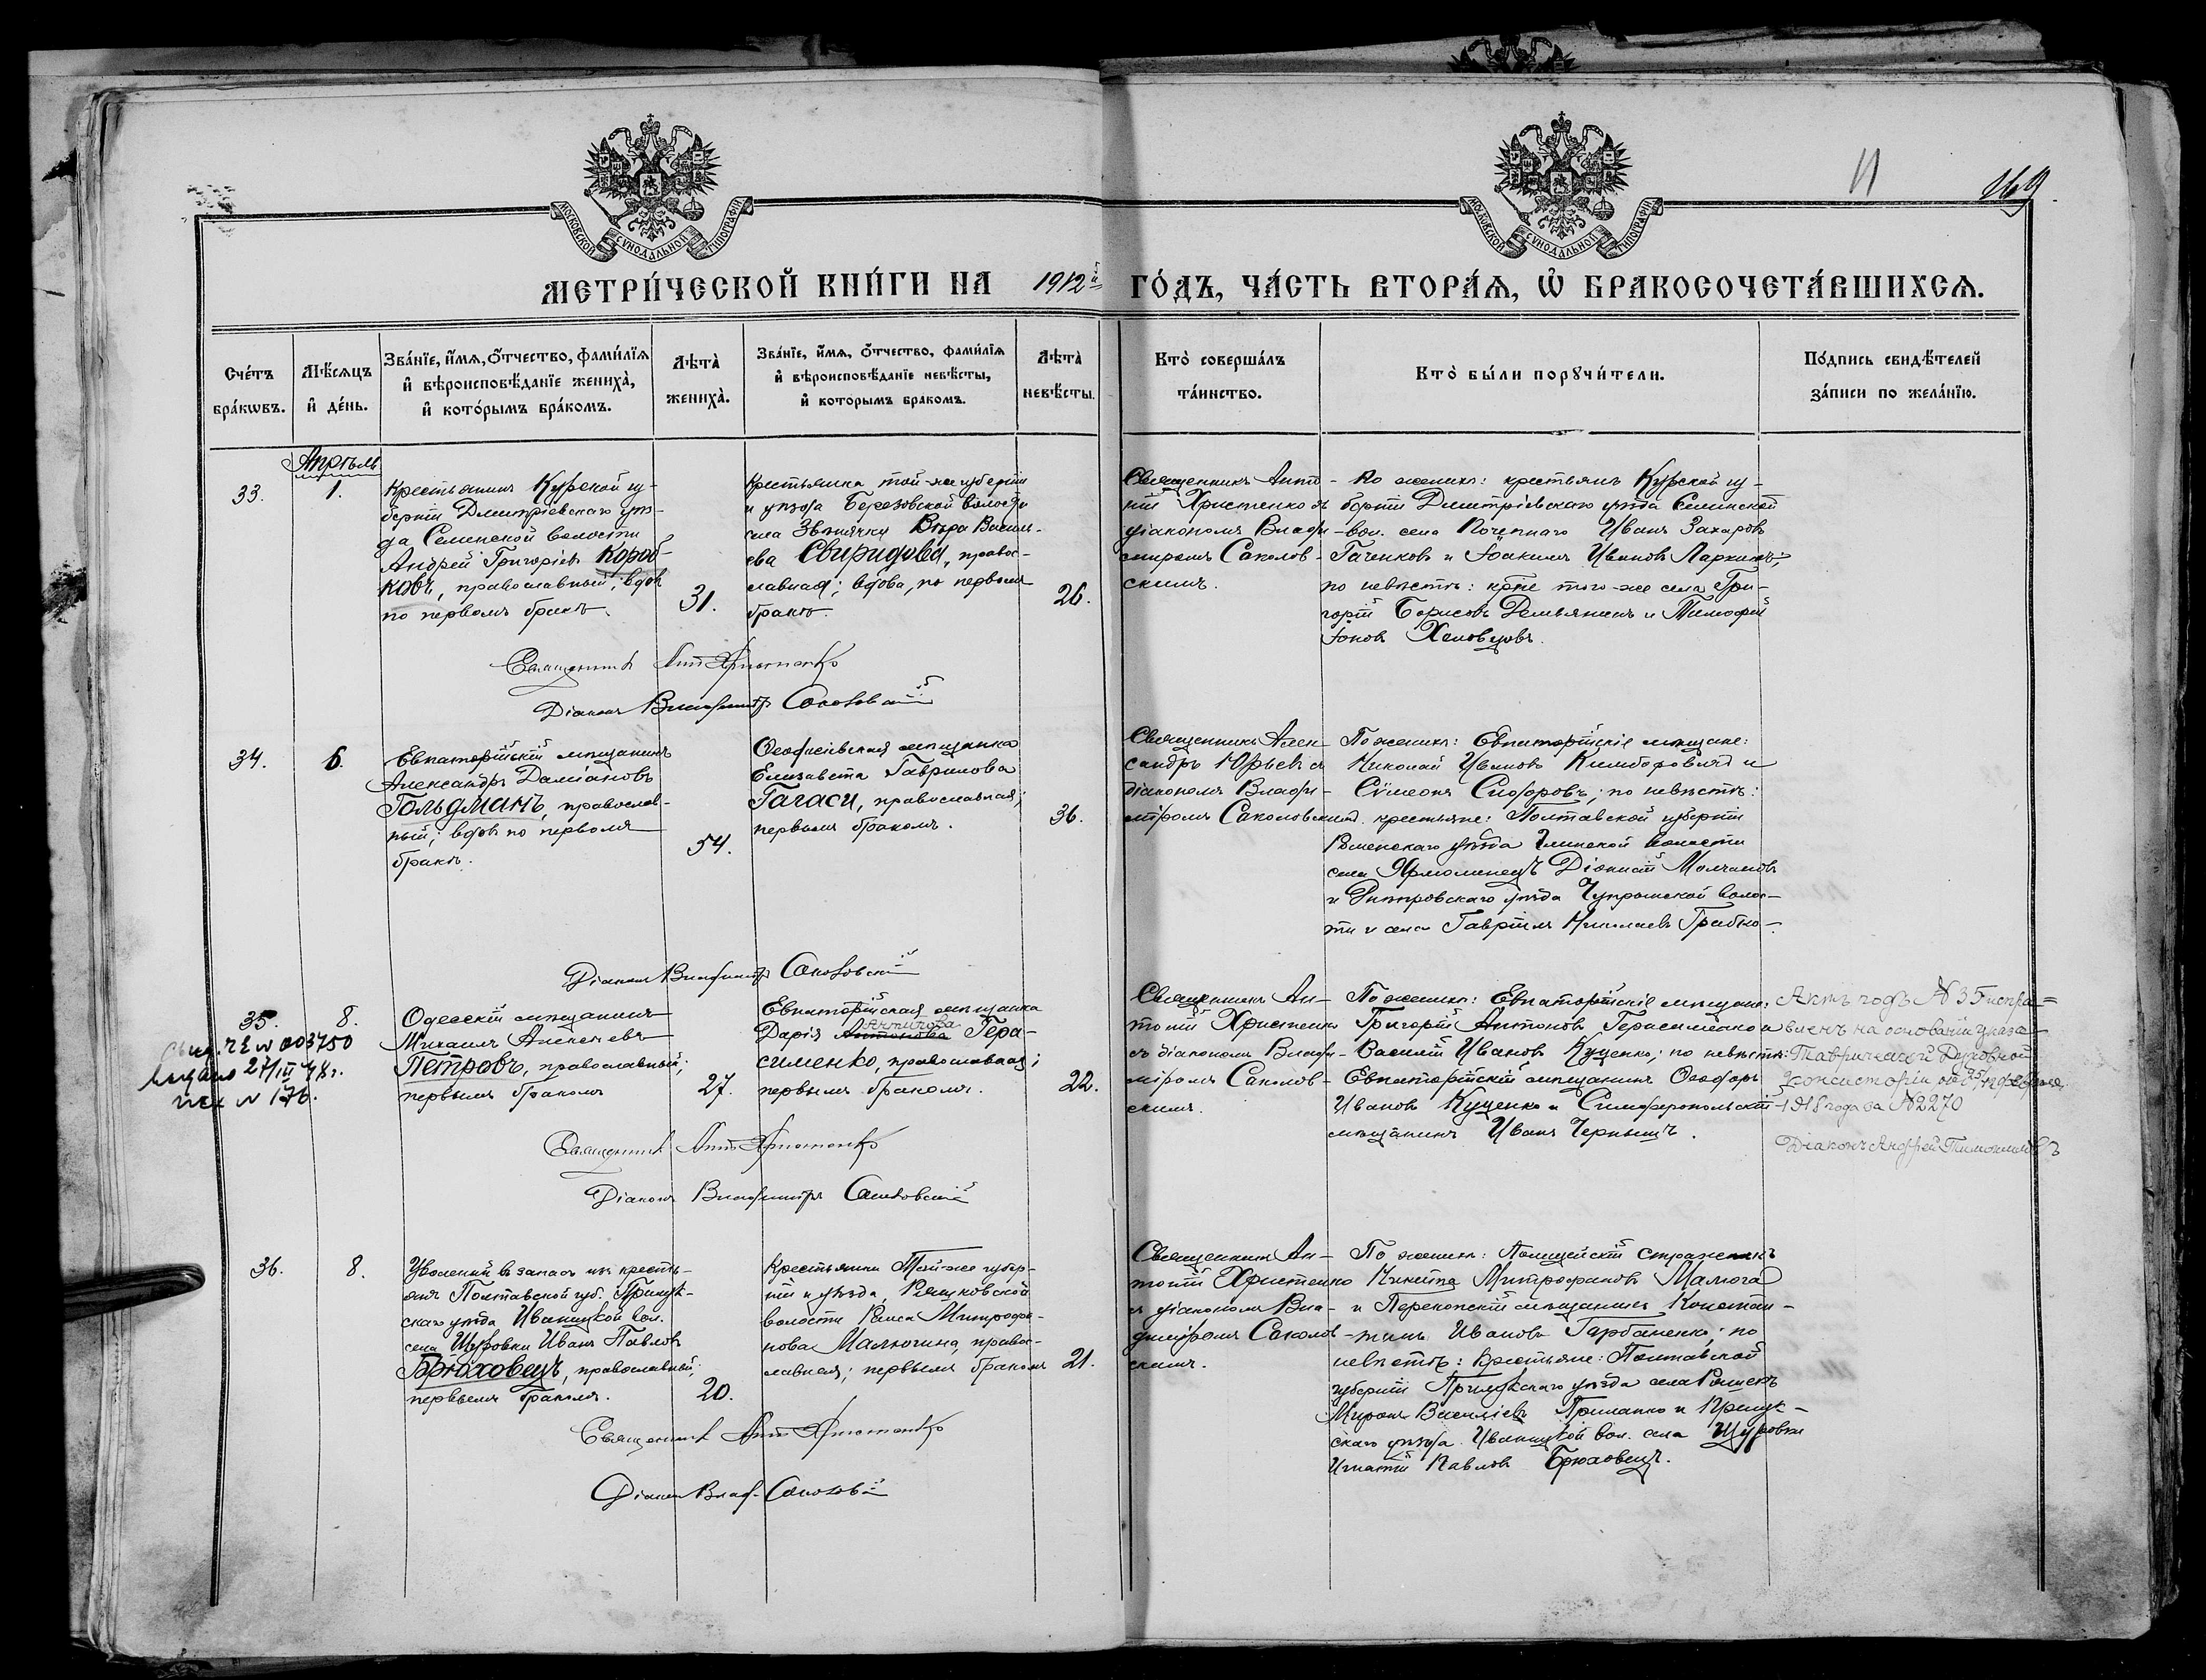 11
169
МОСКОВСКОЙ СѴНОДАЛЬНОЙ ТИПОГРАФІИ
МОСКОВСКОЙ СѴНОДАЛЬНОЙ ТИПОГРАФІИ
МЕТРИ́ЧЕСКОЙ КНИ́ГИ НА 1912й ГО́ДЪ, ЧА́СТЬ ВТОРА́Ѧ, Ѽ БРАКОСОЧЕТА́ВШИХСѦ.
Сче́тъ
бра́кѡвъ.
Мѣ́сѧцъ
и҆ де́нь.
Зва́нїе, и҆́мѧ, ѻ҆́тчество, фами́лїѧ
и҆ вѣроисповѣ́данїе жениха̀,
и҆ кото́рымъ бра́комъ.
Лѣта̀
жениха̀.
Зва́нїе, и҆́мѧ, ѻ҆́тчество, фами́лїѧ
и҆ вѣроисповѣ́данїе невѣ́сты,
и҆ которымъ бракомъ.
Лѣта̀
невѣ́сты.
Кто̀ соверша́лъ
та́инство.
Кто̀ бы́ли порꙋчи́тели.
По́дпись свидѣ́телей
за́писи по жела́нїю.
Апрѣль
33.
1.
Крестьянинъ Курской гу-
берніи Дмитріевскаго уѣз-
да Селинской волости
Андрей Григоріевъ Короб-
ковъ, православный; вдовъ
по первомъ бракѣ.
31.
Крестьянка той-же губерніи
и уѣзда Березовской волости
села Звенячки Вѣра Василь-
ева Свиридова, правос-
лавная; вдова, по первомъ
бракѣ.
26.
Священникъ Анто-
ній Христенко съ
діакономъ Влади-
миромъ Саколов-
скимъ.
По женихѣ: крестьянъ Курской гу-
берніи Дмитріевскаго уѣзда Селинской
вол. села Почепнаго Иванъ Захаровъ
Гаченковъ и Іоакимъ Ивановъ Ларкинъ;
по невѣстѣ: кр-не того-же села Гри-
горій Борисовъ Демьяненъ и Тимофей
Іоновъ Халовцовъ.
Священникъ Ант Христенко
Діаконъ Владиміръ Соколовскій
34.
6.
Евпаторійскій мѣщанинъ
Александръ Даміановъ
Гольдманъ, православ-
ный; вдовъ по первомъ
бракѣ.
54.
Ѳеодосіевская мѣщанка
Елизавета Гаврилова
Гагаси, православная;
первымъ бракомъ.
36.
Священникъ Алек-
сандръ Юрьевъ съ
діакономъ Влади-
міромъ Саколовскимъ.
По женихѣ: Евпаторійскіе мѣщане:
Николай Ивановъ и
Сѵмеонъ Сидоровъ; по невѣстѣ:
крестьяне: Полтавской губерніи
Роменскаго уѣзда Глинской волости
села Ярмолинецъ Діонисій Молчановъ
и Днѣпровскаго уѣзда Чупрынской волос-
ти и села Гавріилъ Николаевъ
Діаконъ Владиміръ Соколовскій
35.
8.
свид. ЧЕ № 003750
выдано 27/III 48г.
исх № 176.
Одесскій мѣщанинъ
Михаилъ Алексѣевъ
Петровъ, православный;
первымъ бракомъ
27.
Евпаторійская мѣщанка
Дарія Антонова Гера-
сименко, православная;
первымъ бракомъ.
22.
Священникъ Ан-
тоній Христенко
съ діакономъ Влади-
міромъ Саколов-
скимъ.
По женихѣ: Евпаторійскіе мѣщане:
Григорій Антоновъ Герасименко и
Василій Ивановъ Куценко; по невѣстѣ:
Евпаторійскій мѣщанинъ Ѳеодоръ
Ивановъ Куценко и Симферопольскій
мѣщанинъ Иванъ Чернышъ.
Актъ годъ № 35 испра=
вленъ на основаніи указа
Таврической Духовной
Консисторіи отъ 25/12 февраля
1918 года за № 2270
Діаконъ Андрей
Священникъ Ант Христенко
Діаконъ Владиміръ Соколовскій
36.
8.
Уволеный въ запасъ изъ кресть-
янъ Полтавской губ. Прилук-
скаго уѣзда Иваницкой вол.
села Щуровки Иванъ Павловъ
Брюховецъ, православный;
первымъ бракомъ.
20.
Крестьянка Той-же губер-
ніи и уѣзда, Рящковской
волости Раиса Митрофа-
нова Малютина, правос-
лавная; первымъ бракомъ
21.
Священникъ Ан-
тоній Христенко
съ діакономъ Вла-
диміромъ Саколов-
скимъ.
По женихѣ: Полицейскій стражникъ
Никита Митрофановъ Малюга
и Перекопскій мѣщанинъ Констан-
тинъ Ивановъ Гарбаненко; по
невѣстѣ: Крестьяне: Полтавской
губерніи Прилукскаго уѣзда села Ряшекъ
Миронъ Василіевъ и Прилук-
скаго уѣзда Иваницкой вол. села Щуровки
Игнатій Павловъ Брюховецъ.
Священникъ Ант Христенко
Діаконъ Влад. Соколовскій